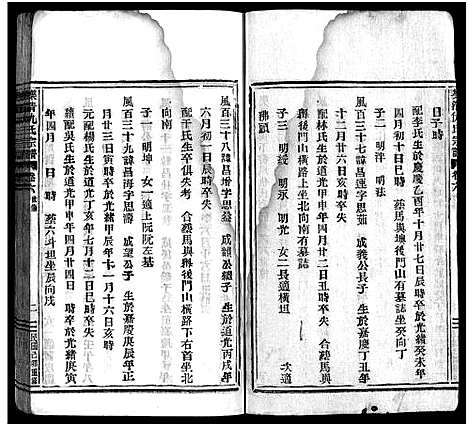 日子時
配李氏生於慶慶乙酉年十月廿七日辰時卒於光緒癸未年
四月初十日辰時 葬馬與壇後門山有墓誌
子二 明坤 明法
風百三十七諱昌連字思茹 成義公長子 生於嘉慶丁丑年
六月十三日子時卒失
配林氏生於道光甲申年四月廿二日丑時卒失 合葬馬與
後門山橫路下左首坐北向南有墓誌
子三 明綬 明永 明光 女二長適橫垣 次適
佛頭
風百三十八諱昌増字思益 成韻公繼子 生於道光丙戌年
六月初一日辰時卒失
配干氏生卒俱失考 合葬馬與後門山橫路下右首坐北
向南
子一 明坤 女一適上阮阮左基
風百三十九諱昌海字思濤 成望公子 生於嘉慶庚辰年正
月廿三日辰時卒於光緒甲申年十一月十六日亥時
元配楊氏生於道光丁亥年七月十二日巳時卒失
繼配吳氏生於道光甲申年四月廿四日 時卒於光緒庚寅
年四月 日 時 葬六斗垣坐辰向戌